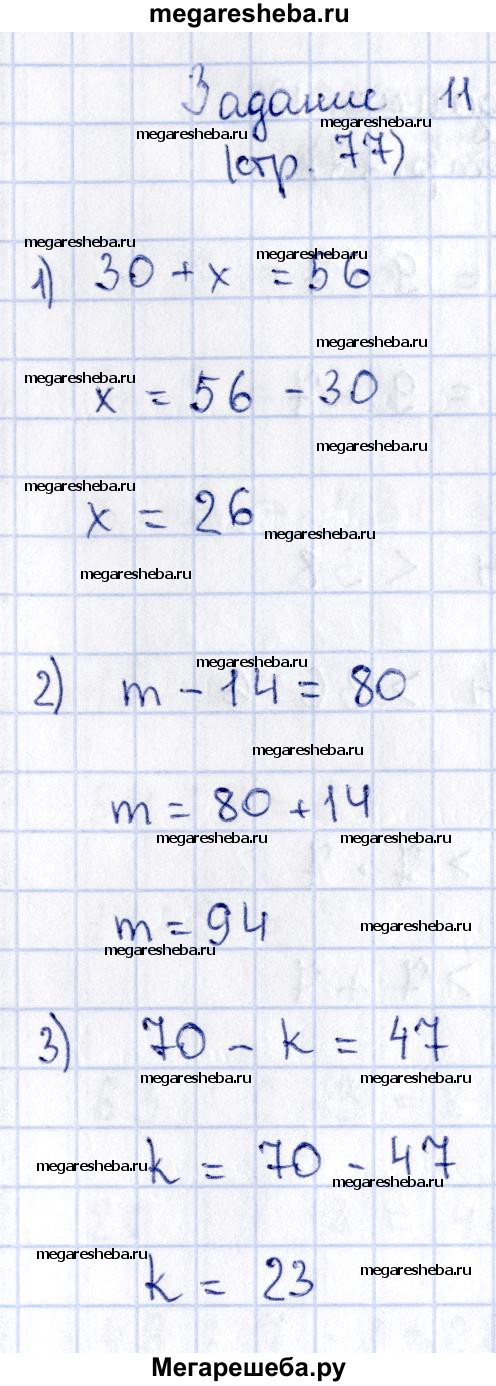 megaresheba.ru
Задание 11
megaresheba.ru megaresheba.ru
(стр. 77)
megaresheba.ru megaresheba.ru
1) 30 + x = 56
megaresheba.ru
megaresheba.ru
x = 56 - 30
megaresheba.ru
megaresheba.ru
x = 26
megaresheba.ru
megaresheba.ru
megaresheba.ru
2) m - 14 = 80
megaresheba.ru
m = 80 + 14
megaresheba.ru megaresheba.ru
m = 94
megaresheba.ru
megaresheba.ru
3) 70 - k = 47
megaresheba.ru megaresheba.ru
k = 70 - 47
megaresheba.ru
megaresheba.ru
megaresheba.ru
k = 23
megaresheba.ru
Мегарешеба.ру